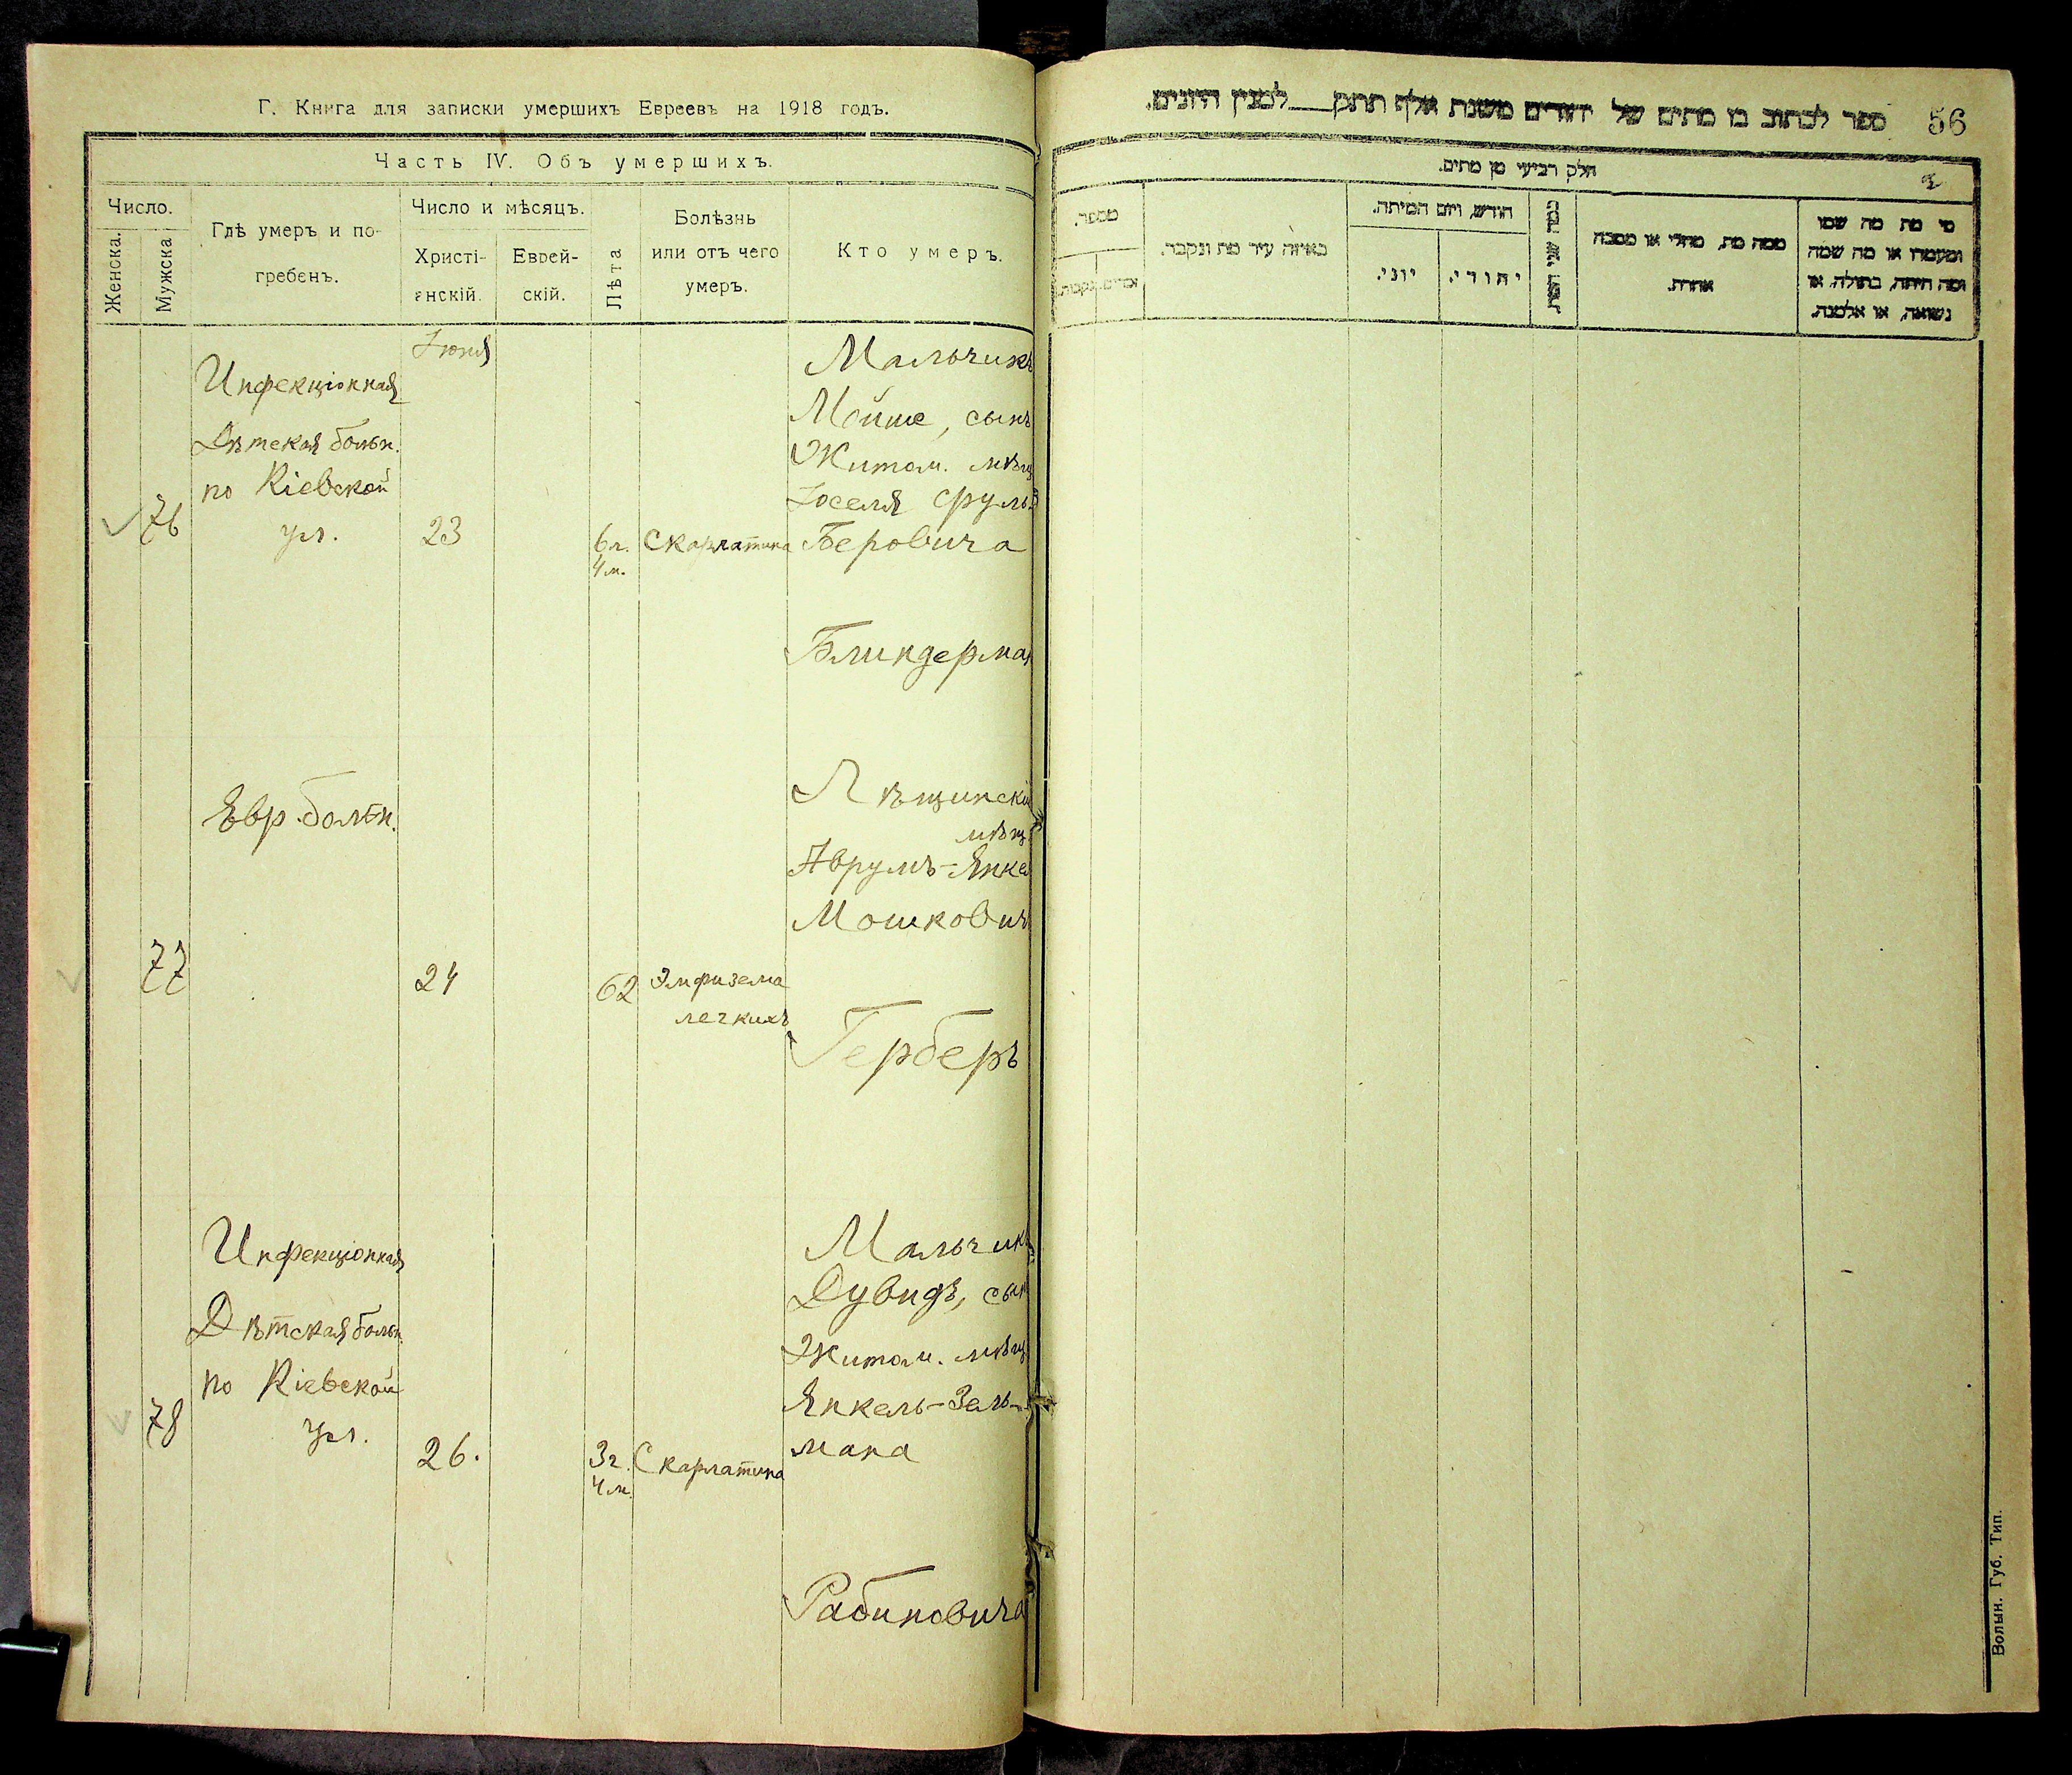 Г. Книга для записки умершихъ Евреевъ на 1918 годъ.
Часть IV. Объ умершихъ.
Число.
Женска.
Мужска
Гдѣ умеръ и по-
гребенъ.
Число и мѣсяцъ.
Христі-
анскій.
Еврей-
скій.
Лѣта
Болѣзнь
или отъ чего
умеръ.
Кто умеръ.
Іюня
76
Инфекціонная
Дѣтская больн.
по Кіевской
ул.
23
6 л.
4 м.
Скарлатина
Мальчикъ
Мойше, сынъ
Житом. мѣщ
Іоселя Сруль
Беровича
Блиндерман
77
Евр. больн.
24
62
Эмфизема
легкихъ
Лѣщинскій
мѣщ
Аврумъ-Янке
Мошкович
Герберъ
78
Инфекціонная
Дѣтская больн.
по Кіевской
ул.
26.
3 г.
4 м.
Скарлатина
Мальчикъ
Дувидъ, сын
Житом. мѣщ
Янкель-Зель-
мана
Рабиновича
ספר לכתוב בו מתים של יהודים משנת אלף תתק___למנין היונים.
56
חלק רביעי מן מתים.
מספר.
זכרים.
נקבות.
באיזה עיר מת ונקבר.
חודש, ויום המיתה.
יוני.
יהודי.
כמה שני המת
ממה מת, מחלי או מסבה
אחרת.
מי מת מה שמו
ומעמדו או מה שמה
ומה היתה, בתולה, או
נשואה, או אלמנה.
Волын. Губ. Тип.